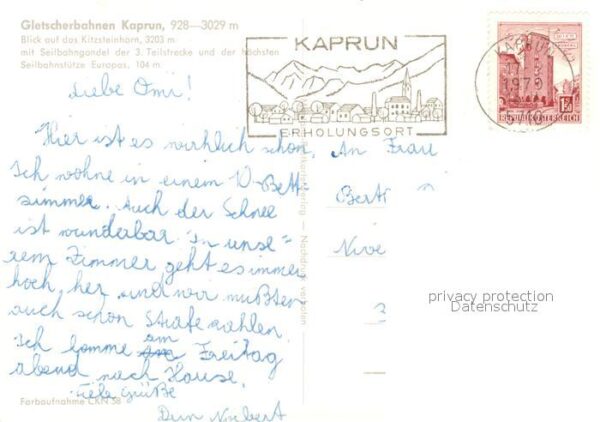 Gletscherbahnen Kaprun, 928—3029 m
Blick auf das Kitzsteinhorn, 3203 m
mit Seilbahngondel der 3. Teilstrecke und der höchsten
Seilbahnstütze Europas, 104 m
KAPRUN
ERHOLUNGSORT
KAPRUN
1970
5710
REPUBLIK ÖSTERREICH
Liebe Omi!
Hier ist es wirklich schön.
Ich wohne in einem 10-Bett-
zimmer. Auch der Schnee
ist wunderbar. In unse=
rem Zimmer geht es immer
hoch her, und wir mußten
auch schon Strafe zahlen.
Ich komme am Freitag
abend nach Hause.
Viele Grüße
Dein Norbert
An Frau
Bert
Nive
privacy protection
Datenschutz
Farbaufnahme CKN 58
Nachdruck verboten